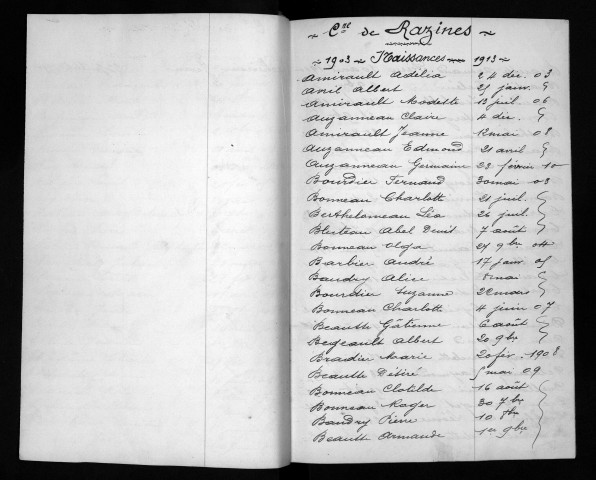 Cne de Razines
1903 Naissances 1913
Amirault Adélia 24 déc. 03
Anil Albert 25 janv.
Amirault Modette 13 juil 06
Auzanneau Claire 4 déc.
Amirault Jeanne 12 mai 08
Auzanneau Edmond 21 avril
Auzanneau Germaine 23 février 10
Bourdier Fernand 30 mai 03
Bonneau Charlotte 21 juil.
Berthelomeau Léo 26 juil.
Abel Denis 7 août
Bonneau Olga 29 9bre 04
Barbier André 17 janv. 05
Baudry Alice 8 mai
Bourdier Suzanne 22 mars
Bonneau Charlotte 4 juin 07
Beauth Gâtienne 6 août
Begeault Albert 20 9bre
Bradier Marie 20 fév. 1908
Beauth Désiré 5 mai 09
Bonneau Clotilde 16 août
Bonneau Roger 30 7bre
Baudry Pierre 10 8bre
Beault Armande 1er 9bre